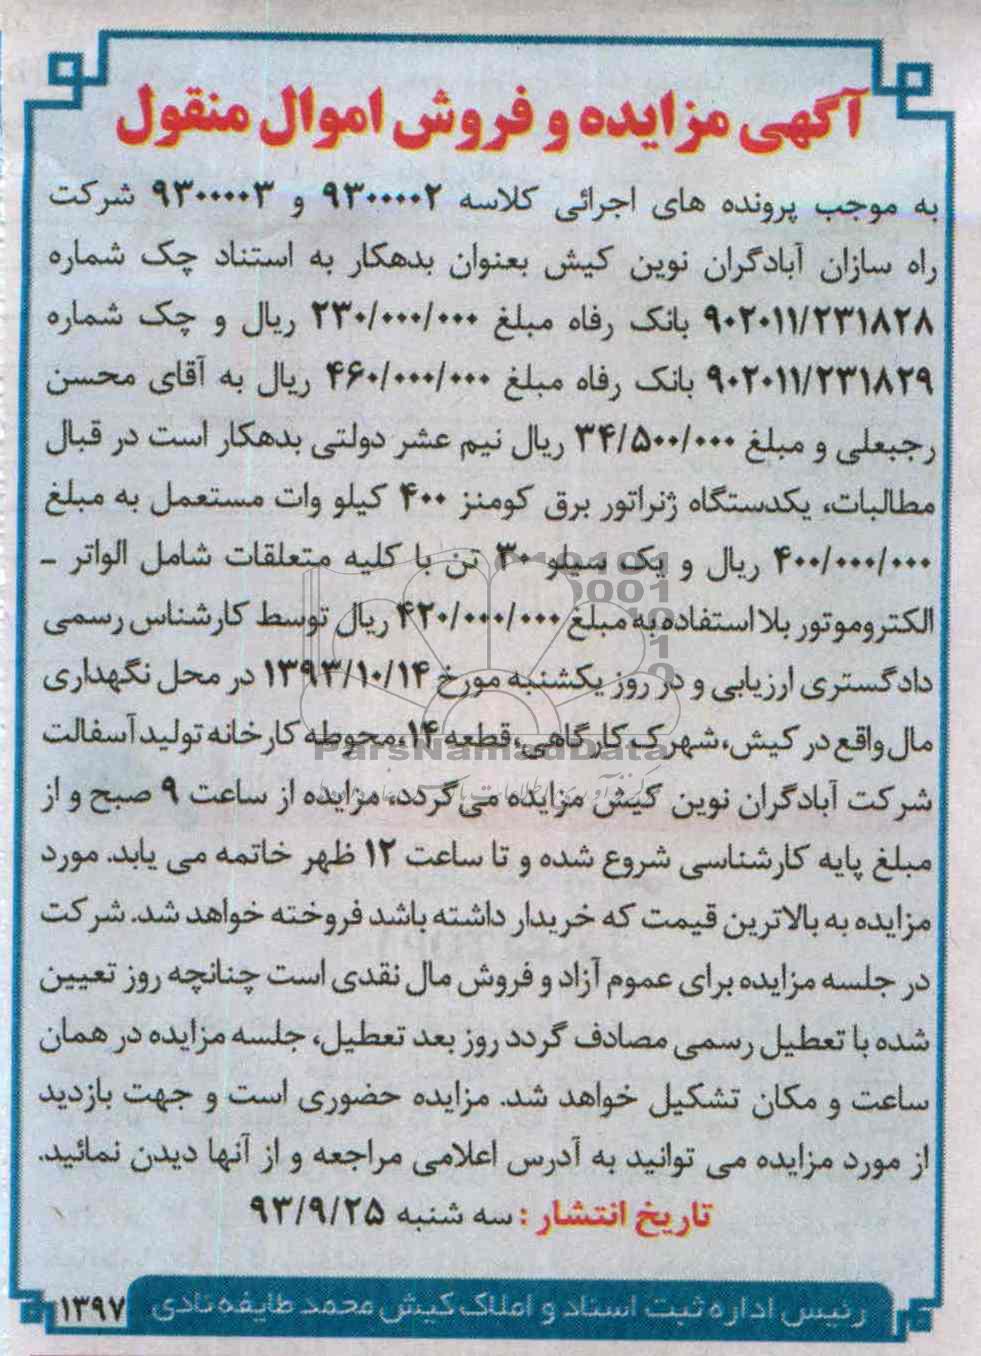 آگهی مزایده و فروش اموال منقول
به موجب پرونده های اجرائی کلاسه ۹۳۰۰۰۰۲ و ۹۳۰۰۰۰۳ شرکت
راه سازان آبادگران نوین کیش بعنوان بدهکار به استناد چک شماره
۹۰۲۰۱۱/۲۳۱۸۲۸ بانک رفاه مبلغ ۲۳۰/۰۰۰/۰۰۰ ریال و چک شماره
۹۰۲۰۱۱/۲۳۱۸۲۹ بانک رفاه مبلغ ۴۶۰/۰۰۰/۰۰۰ ریال به آقای محسن
رجبعلی و مبلغ ۳۴/۵۰۰/۰۰۰ ریال نیم عشر دولتی بدهکار است در قبال
مطالبات، یکدستگاه ژنراتور برق کومنز ۴۰۰ کیلو وات مستعمل به مبلغ
۴۰۰/۰۰۰/۰۰۰ ریال و یک سیلو ۳۰ تن با کلیه متعلقات شامل الواتر -
الکتروموتور بلا استفاده به مبلغ ۴۲۰/۰۰۰/۰۰۰ ریال توسط کارشناس رسمی
دادگستری ارزیابی و در روز یکشنبه مورخ ۱۳۹۳/۱۰/۱۴ در محل نگهداری
مال واقع در کیش، شهرک کارگاهی، قطعه ۱۴، محوطه کارخانه تولید آسفالت
ParsNamadData
شرکت آبادگران نوین کیش مزایده می‌گردد، مزایده از ساعت ۹ صبح و از
مبلغ پایه کارشناسی شروع شده و تا ساعت ۱۲ ظهر خاتمه می یابد. مورد
مزایده به بالاترین قیمت که خریدار داشته باشد فروخته خواهد شد. شرکت
در جلسه مزایده برای عموم آزاد و فروش مال نقدی است چنانچه روز تعیین
شده با تعطیل رسمی مصادف گردد روز بعد تعطیل، جلسه مزایده در همان
ساعت و مکان تشکیل خواهد شد. مزایده حضوری است و جهت بازدید
از مورد مزایده می توانید به آدرس اعلامی مراجعه و از آنها دیدن نمائید.
تاریخ انتشار : سه شنبه ۹۳/۹/۲۵
رئیس اداره ثبت اسناد و املاک کیش محمد طایفه نادی ۱۳۹۷